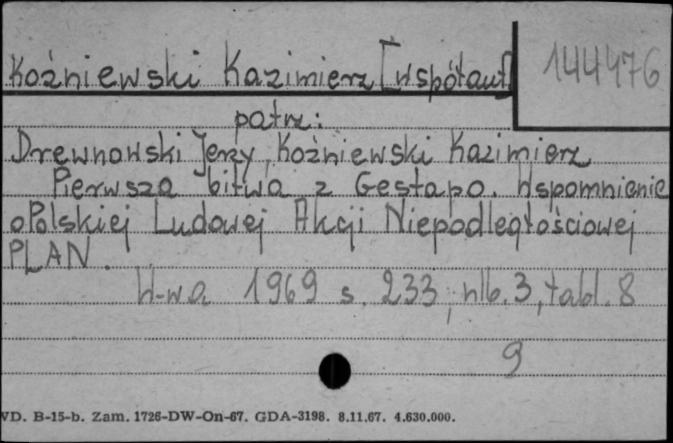 Koźniewski Kazimierz [Współaut]
144476
patrz:
Drewnowski Jerzy, Koźniewski Kazimierz
Pierwsza bitwa z Gestapo. Wspomnienie
o Polskiej Ludowej Akcji Niepodległościowej
PLAN.
W-wa 1969 s. 233, nlb. 3, tabl. 8
9
VD. B-15-b. Zam. 1726-DW-On-67. GDA-3198. 8.11.67. 4.630.000.